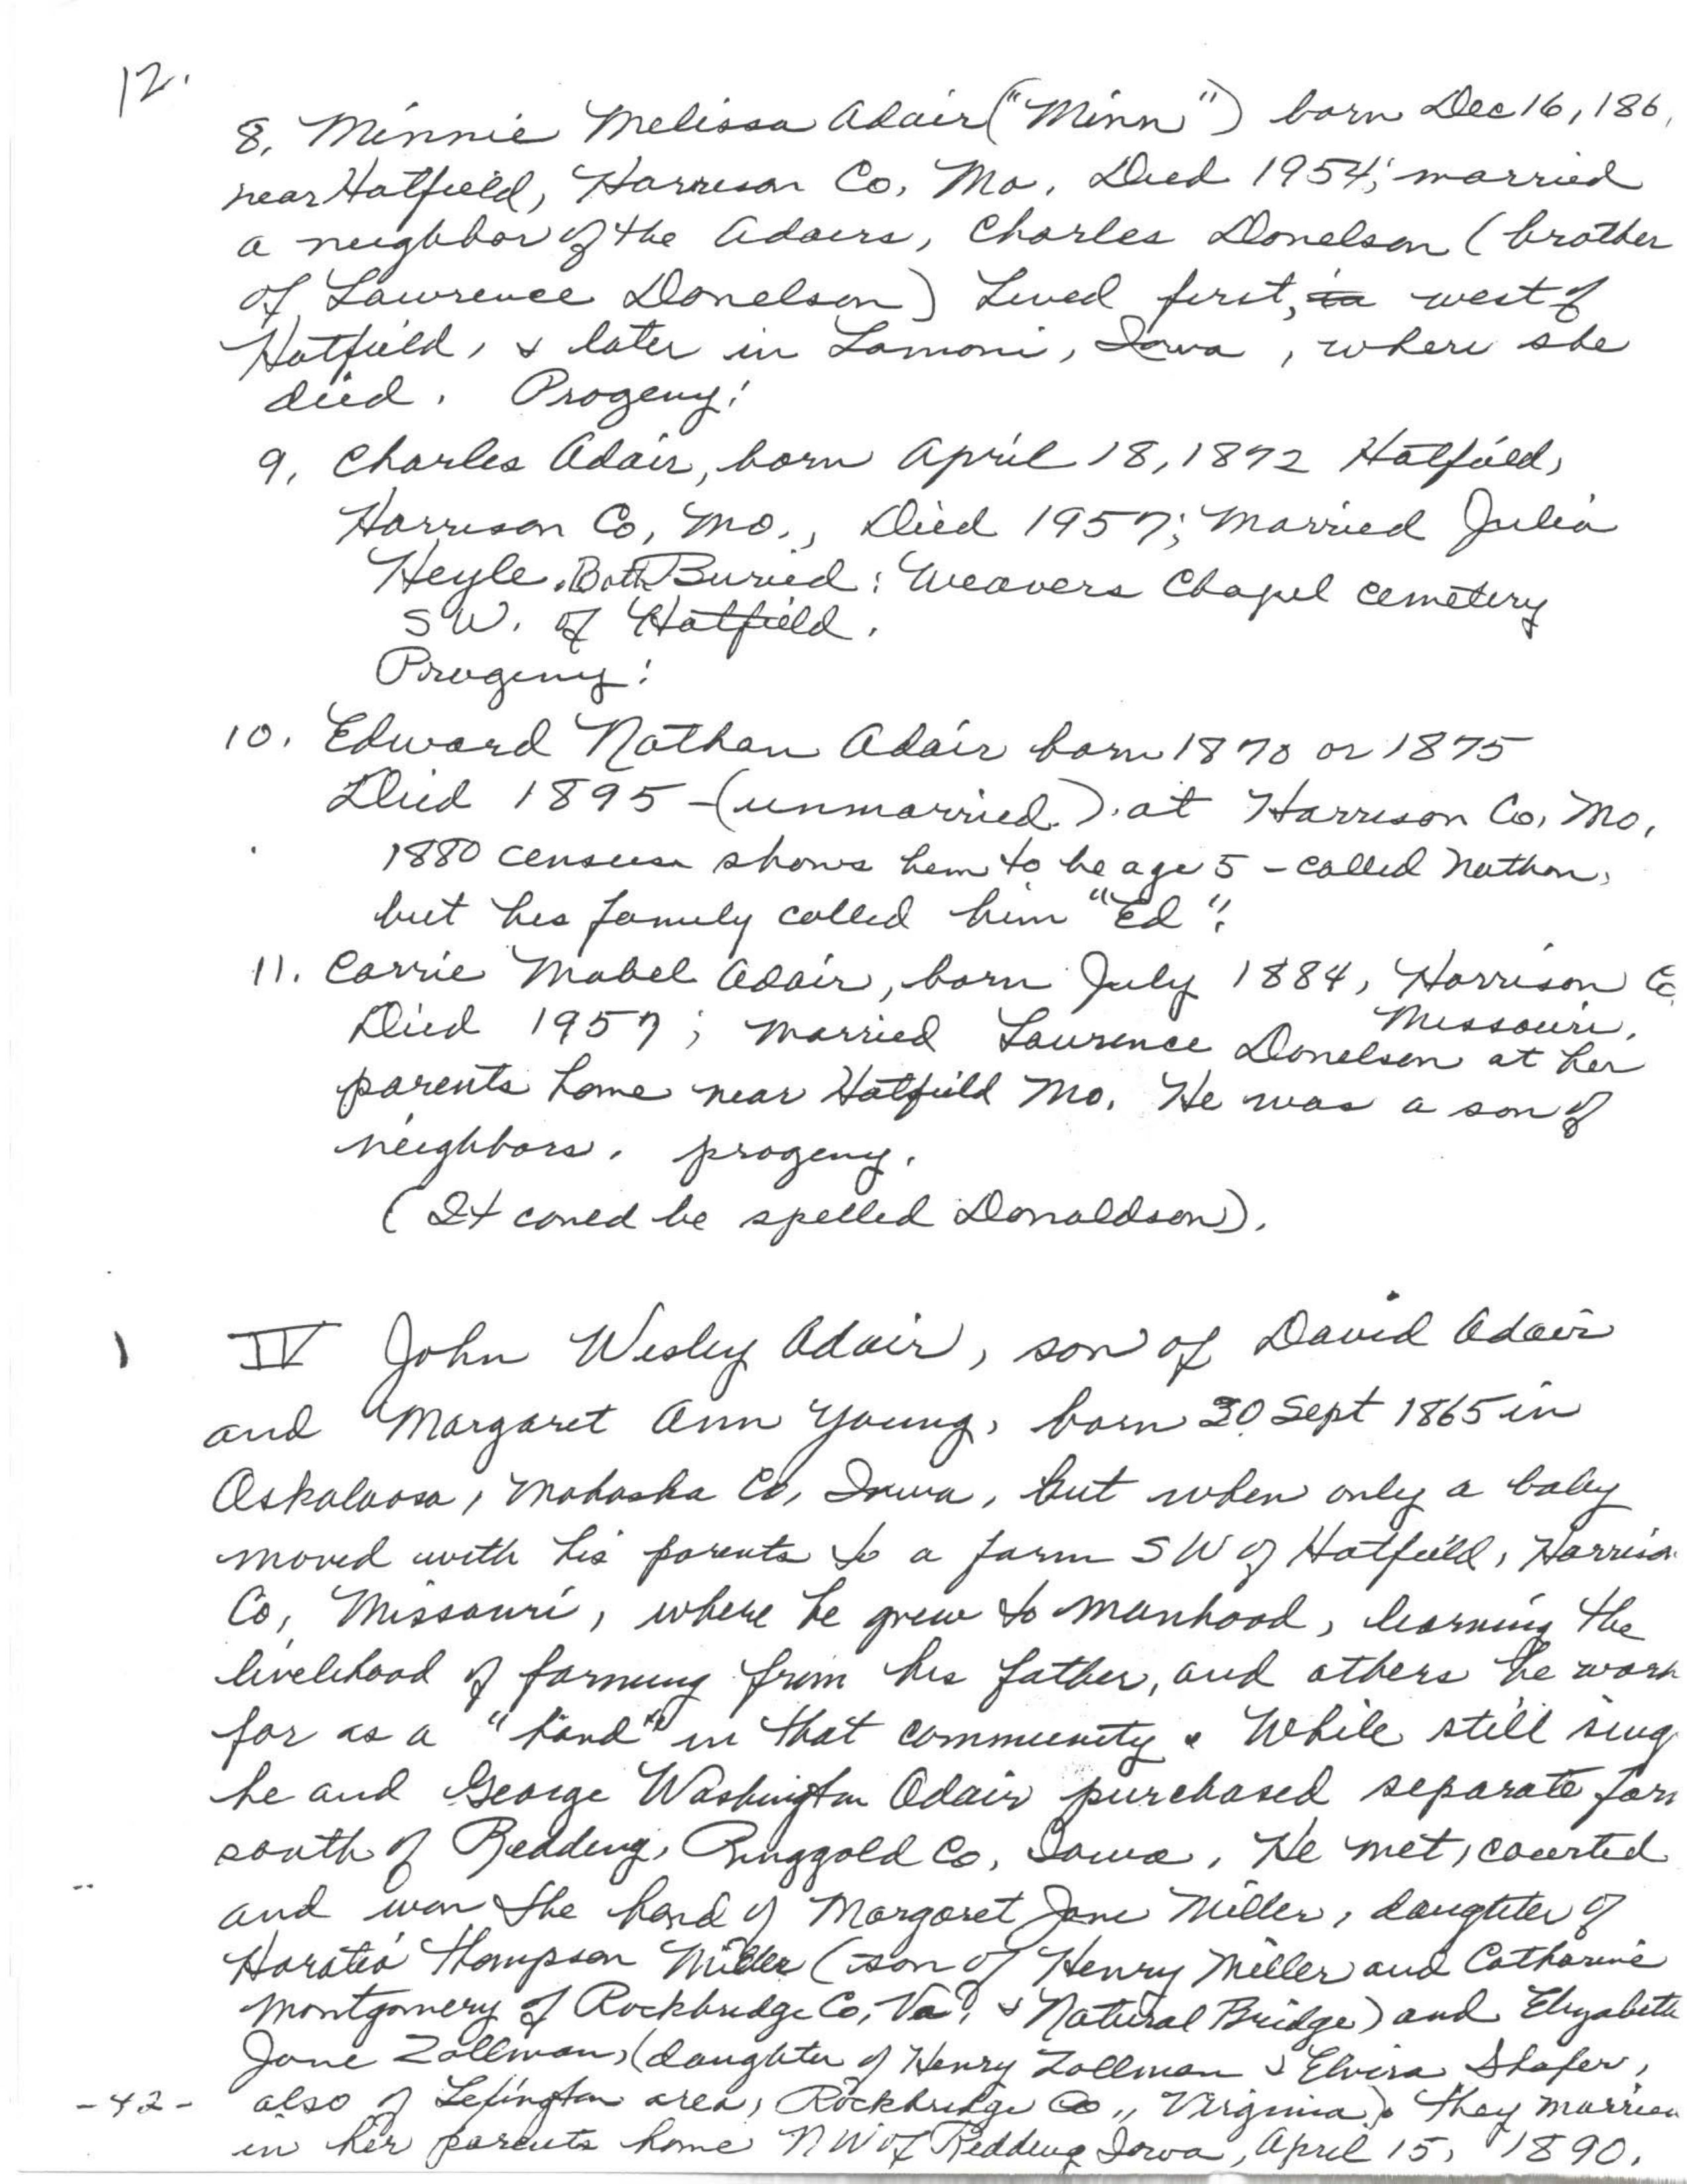 12.
8. Minnie Melissa Adair ("Minn") born Dec 16, 186
near Hatfield, Harrison Co, Mo. Died 1954; married
a neighbor of the Adairs, Charles Donelson (brother
of Lawrence Donelson) Lived first, in west of
Hatfield, & later in Lamoni, Iowa, where she
died. Progeny:
9. Charles Adair, born April 18, 1872 Hatfield,
Harrison Co, Mo., Died 1957; Married Julia
Heyle. Both Buried: Weavers Chapel Cemetery
SW. of Hatfield.
Progeny:
10. Edward Nathan Adair born 1870 or 1875
Died 1895 - (unmarried). at Harrison Co, Mo,
1880 census shows him to be age 5 - called Nathan,
but his family called him "Ed".
11. Carrie Mabel Adair, born July 1884, Harrison Co
Missouri.
Died 1957; married Laurence Donelson at her
parents home near Hatfield Mo. He was a son of
neighbors. progeny.
(It could be spelled Donaldson).
IV John Wesley Adair, son of David Adair
and Margaret Ann Young, born 30 Sept 1865 in
Oskaloosa, Mahaska Co, Iowa, but when only a baby
moved with his parents to a farm SW of Hatfield, Harrison
Co, Missouri, where he grew to manhood, learning the
livelihood of farming from his father, and others he work
for as a "hand" in that community. While still sing
he and George Washington Adair purchased separate farm
south of Redding, Ringgold Co, Iowa. He met, courted
and won the hand of Margaret Jane Miller, daughter of
Horatio Thompson Miller (son of Henry Miller and Catharine
Montgomery of Rockbridge Co, Va, & Natural Bridge) and Elizabeth
Jane Zollman, (daughter of Henry Zollman & Elvira Shafer,
-42- also of Lexington area, Rockbridge Co., Virginia). They married
in her parents home NW of Redding Iowa, April 15, 1890.